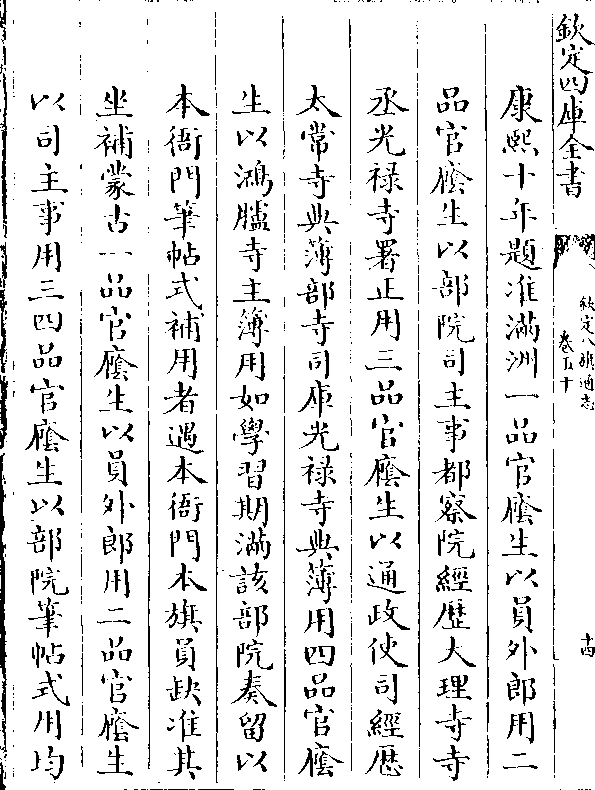 欽定四庫全書
欽定八旗通志
卷五十
十四
康熙十年題准滿洲一品官廕生以員外郎用二
品官廕生以部院司主事都察院經歷大理寺寺
丞光禄寺署正用三品官廕生以通政使司經歷
太常寺典簿部寺司庫光禄寺典簿用四品官廕
生以鴻臚寺主簿用如學習期滿該部院奏留以
本衙門筆帖式補用者遇本衙門本旗員缺准其
坐補蒙古一品官廕生以員外郎用二品官廕生
以司主事用三四品官廕生以部院筆帖式用均